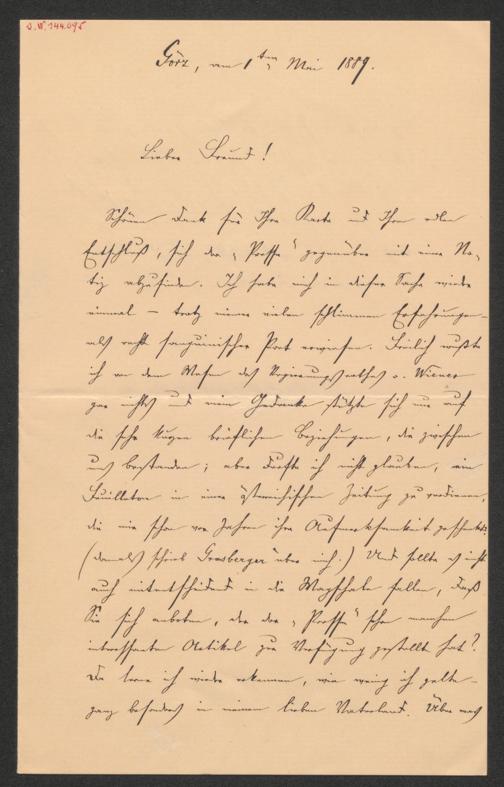 J.N. 144.095
Görz, am 1ten Mai 1889.
Lieber Freund!
Schönen Dank für Ihre Karte und Ihren edlen
Entschluß, sich der „Presse" gegenüber mit einer No-
tiz abzufinden. Ich habe mich in dieser Sache wieder
einmal – trotz meiner vielen schlimmen Erfahrungen –
als recht sanguinischer Poet erwiesen. Freilich wußte
ich von dem Wesen des Regierungsrathes v. Wiener
gar nichts und mein Gedanke stützte sich nur auf
die sehr kurzen brieflichen Beziehungen, die zwischen
uns bestanden; aber durfte ich nicht glauben, ein
Feuilleton in einer österreichischen Zeitung zu verdienen,
die mir schon vor Jahren ihre Aufmerksamkeit geschenkt?
(damals schrieb Grasberger über mich.) Und sollte es nicht
auch mitentscheidend in die Wagschale fallen, daß
Sie sich anboten, der der „Presse" schon manchen
interessanten Artikel zur Verfügung gestellt hat?
Da lerne ich wieder erkennen, wie wenig ich gelte –
ganz besonders in meinem lieben Vaterland. Über was